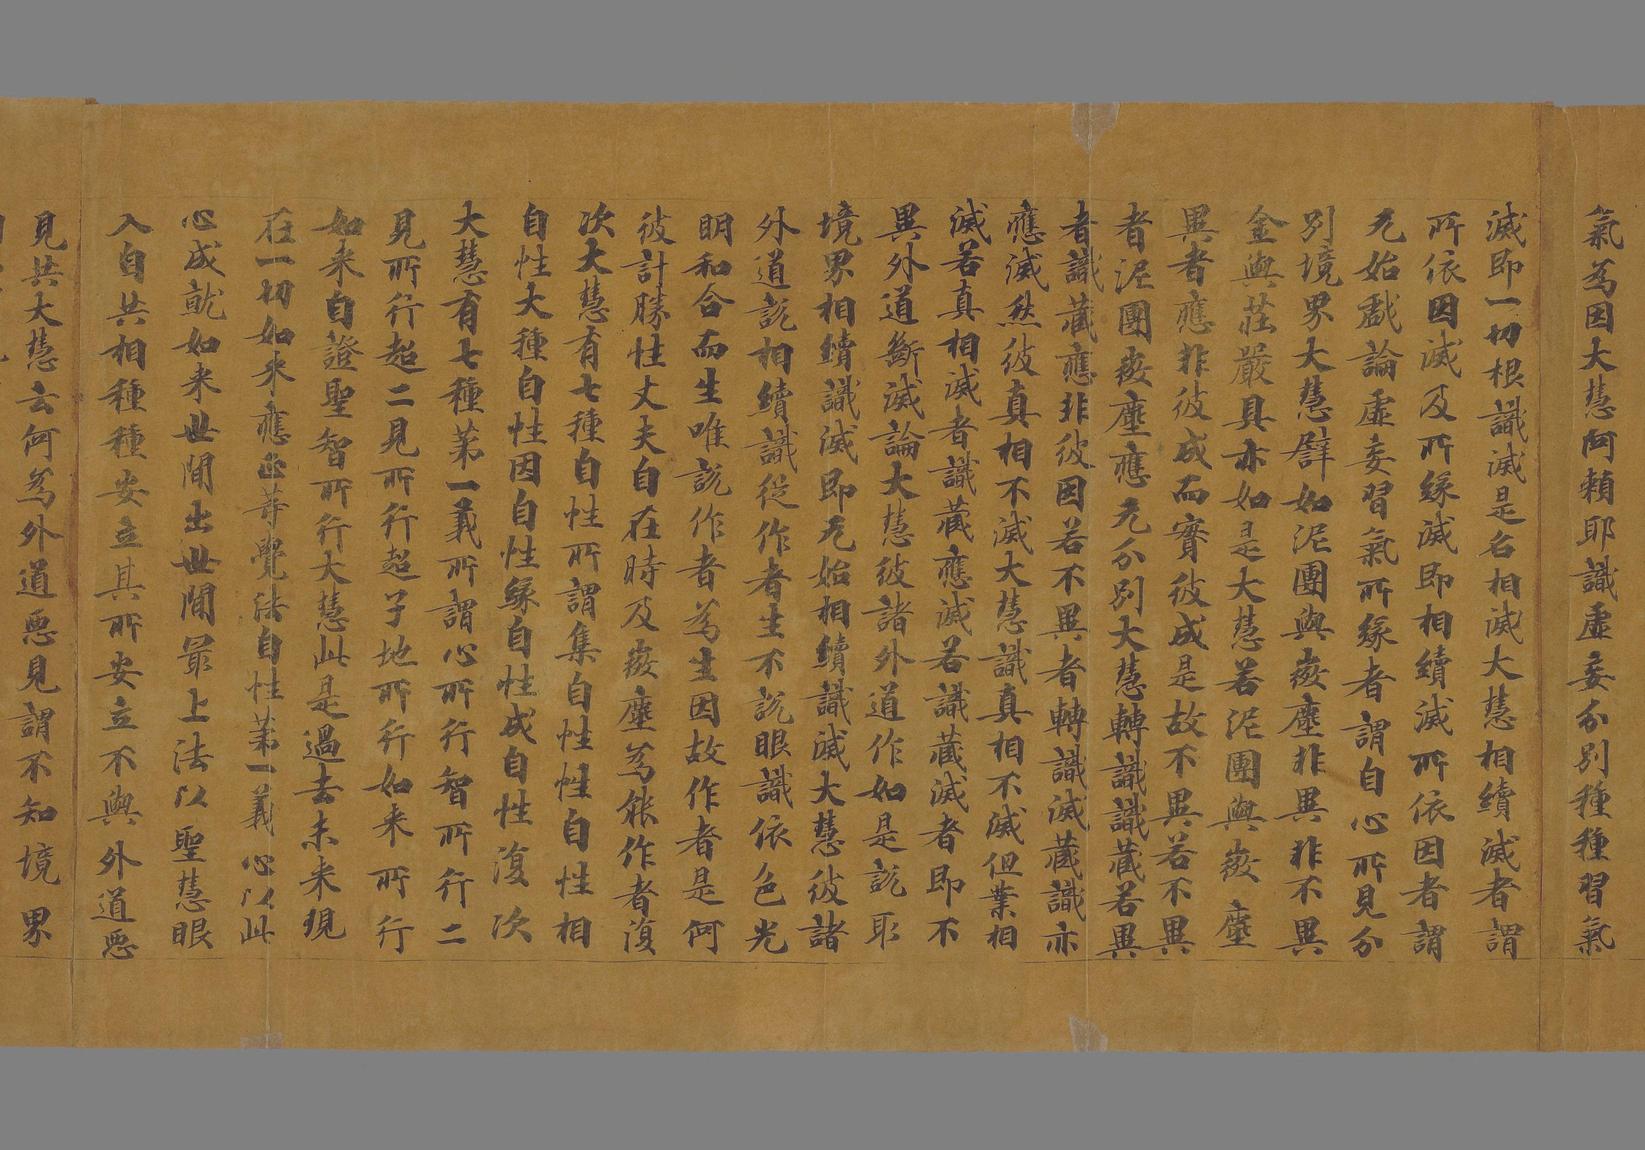 氣為因大慧阿賴耶識虛妄分別種種習氣
滅即一切根識滅是名相滅大慧相續滅者謂
所依因滅及所緣滅即相續滅所依因者謂
无始戲論虛妄習氣所緣者謂自心所見分
別境界大慧譬如泥團與微塵非異非不異
金與莊嚴具亦如是大慧若泥團與微塵
異者應非彼成而實彼成是故不異若不異
者泥團微塵應无分別大慧轉識識藏若異
者識藏應非彼因若不異者轉識滅藏識亦
應滅然彼真相不滅大慧識真相不滅但業相
滅若真相滅者識藏應滅若識藏滅者即不
異外道斷滅論大慧彼諸外道作如是說取
境界相續識滅即无始相續識滅大慧彼諸
外道說相續識從作者生不說眼識依色光
明和合而生唯說作者為生因故作者是何
彼計勝性丈夫自在時及微塵為能作者復
次大慧有七種自性所謂集自性性自性相
自性大種自性因自性緣自性成自性復次
大慧有七種第一義所謂心所行智所行二
見所行超二見所行超子地所行如来所行
如来自證聖智所行大慧此是過去未来現
在一切如来應正等覺法自性第一義心以此
心成就如来世間出世間最上法以聖慧眼
入自共相種種安立其所安立不與外道惡
見共大慧云何為外道惡見謂不知境界